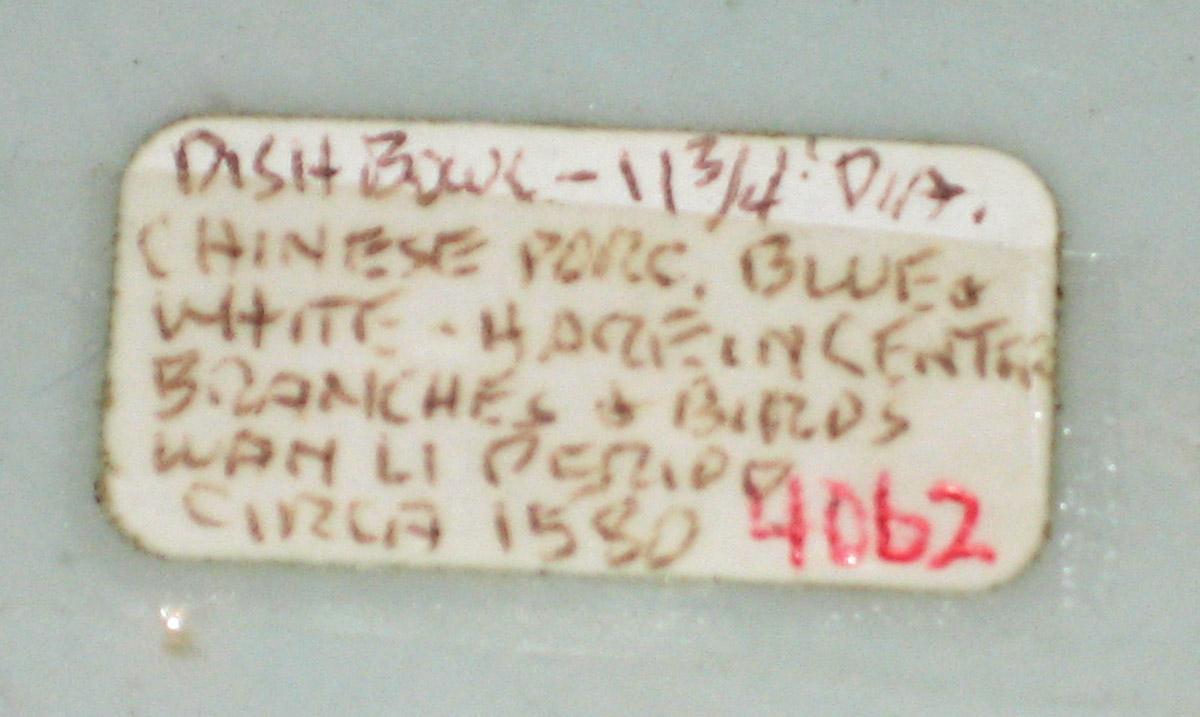 DISH BOWL - 11 3/4" DIA.
CHINESE PORC. BLUE &
WHITE - HARE IN CENTER
BRANCHES & BIRDS
WAN LI PERIOD
CIRCA 1580
4062